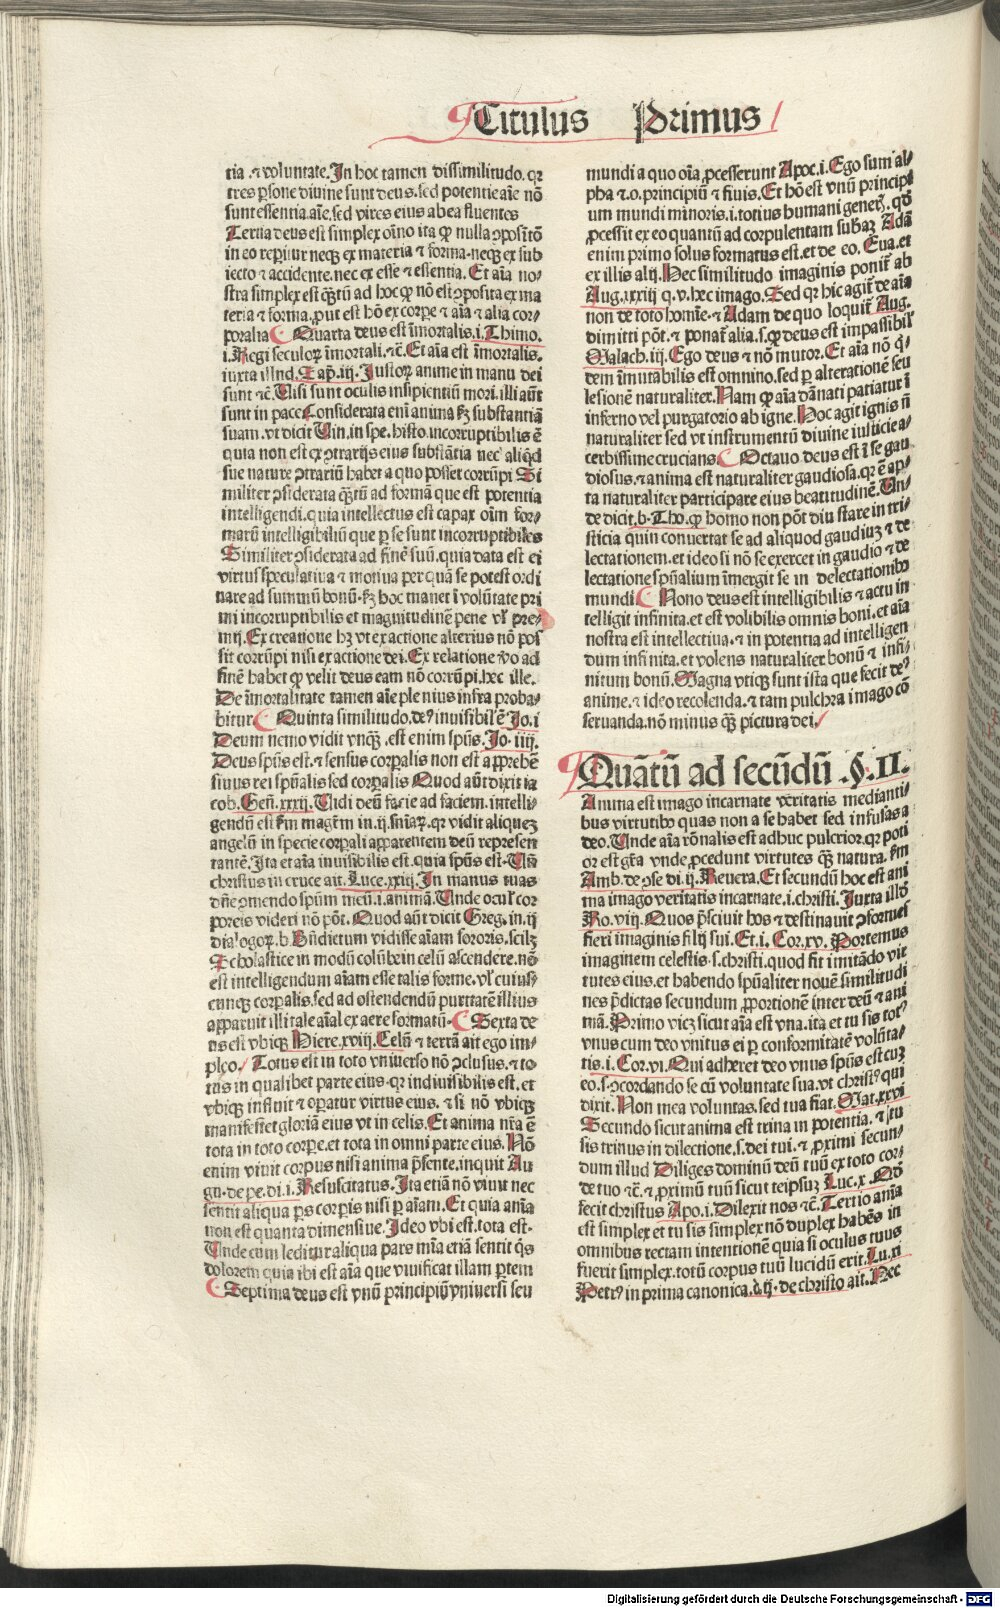 Titulus Primus
tia .⁊ voluntate. In hoc tamen dissimilitudo. qꝛ
tres ꝑsone diuine sunt deus. sed potentie aīe nō
sunt essentia. aīe, sed vires eius ab ea fluentes
Tertia deus est simplex oīno ita ꝙ nulla ꝯpositō
in eo reperitur neqꝫ ex materia ⁊ forma. neqꝫ ex sub
iecto ⁊ accidente. nec ex esse ⁊ essentia. Et aīa no⸗
stra simplex est qꝫtū ad hoc ꝙ nō est ꝯposita ex ma
teria ⁊ forma, prout est hō ex corpe ⁊ aīa ⁊ alia cor⸗
poralia Quarta deus est īmortalis. i. Thimo.
i. Regi seculoꝝ īmortali. ⁊c̄. Et aīa est īmortalis.
iuxta illud. Sap. iij. Iustoꝝ anime in manu dei
sunt ⁊c̄. Uisi sunt oculis insipientiū mori. illi aūt
sunt in pace Considerata enī anima kꝫ substantiā
suam. vt dicit Uin. in spe. histo. incorruptibilis ē
quia non est ex ꝯtrarijs eius substātia nec aliqd
sue nature ꝯtrariū habet a quo posset corrūpi Si
militer ꝯsiderata qꝫtū ad formā que est potentia
intelligendi. quia intellectus est capax oīm for⸗
marū intelligibiliū que ꝑ se sunt incorruptibiles
Similiter ꝯsiderata ad finē suū. quia data est ei
virtus speculatiua ⁊ motiua per quā se potest ordi
nare ad summū bonū. kꝫ hoc manet ī volūtate pri
mi incorruptibilis et magnitudinē pene vl' pre⸗
mij. Ex creatione hꝫ vt ex actione alterius nō pos
sit corrūpi nisi ex actione dei. Ex relatione v̄o ad
finē habet ꝙ velit deus eam nō corrūpi. hec ille.
De īmortalitate tamen aīe plenius infra proba⸗
bitur Quinta similitudo. deꝰ inuisibil' ē Jo. i
Deum nemo vidit vnqꝫ. est enim spūs. Jo. iiij.
Deus spūs est. ⁊ sensus corꝑalis non est apprehē
siuus rei spūalis sed corꝑalis Quod aūt dixit ia
cob. Geñ. xxxij. Uidi deū facie ad faciem. intelli⸗
gendū est km̄ magr̄m in. ij. sn̄iaꝝ. qꝛ vidit aliquez
angelū in specie corꝑali apparentem deū represen
tantē. Ita et aīa inuisibilis est. quia spūs est. Uñ
christus in cruce ait. Luce. xxiij. In manus tuas
dn̄e ꝯmendo spūm meū. i. animā. Unde ocul' cor
poreis videri nō pōt. Quod aūt dicit Greg. in. ij
dialogoꝝ. b. Bñdictum vidisse aīam sororis. scilꝫ
Scholastice in modū colūbe in celū ascendere. nō
est intelligendum aīam esse talis forme. vl' cuius⸗
cunqꝫ corꝑalis. sed ad ostendendū puritatē illius
apparuit illi tale aīal ex aere formatū. Sexta de
us est vbiqꝫ Hiere. xviij. Celū ⁊ terrā ait ego im⸗
pleo. Totus est in toto vniuerso nō ꝯclusus. ⁊ to
tus in qualibet parte eius. qꝛ indiuisibilis est. et
vbiqꝫ influit ⁊ oꝑatur virtus eius. ⁊ si nō vbiqꝫ
manifestet gloriā eius vt in celis. Et anima nr̄a ē
tota in toto corꝑe. et tota in omni parte eius. Nō
enim viuit corpus nisi anima pn̄sente. inquit Au
gu. de pe. di. i. Resuscitatus. Ita etiā nō viuit nec
sentit aliqua ꝑs corꝑis nisi ꝑ aīam. Et quia aīa
non est quanta dimensiue. Ideo vbi est. tota est.
Unde cum leditur aliqua pars mīa etiā sentit qs
dolorem quia ibi est aīa que viuificat illam ꝑtem
Septima deus est vnū principiū vniuersi seu
mundi a quo oīa ꝓcesserunt Apoc. i. Ego sum al⸗
pha ⁊ o. principiū ⁊ finis. Et hō est vnū principi
um mundi minoris. i. totius humani generꝭ. qd̄
ꝓcessit ex eo quantū ad corpulentam subāꝫ Adā
enim primo solus formatus est. et de eo. Eua. et
ex illis alij. Hec similitudo imaginis ponit̄ ab
Aug. xxiij q. v. hec imago. Sed qꝛ hic agit̄ de aīa
non de toto homīe. ⁊ Adam de quo loquit̄ Aug.
dimitti pōt. ⁊ ponat̄ alia. s. ꝙ deus est impassibil'
Malach. iij. Ego deus ⁊ nō mutor. Et aīa nō q̇⸗
dem īmutabilis est omnino. sed ꝑ alterationē seu
lesionē naturaliter. Nam ꝙ aīa dānati patiatur ī
inferno vel purgatorio ab igne. Hoc agit ignis nī
naturaliter sed vt instrumentū diuine iusticie a⸗
cerbissime crucians Octauo deus est ī se gau
diosus. ⁊ anima est naturaliter gaudiosa. qꝛ ē ap⸗
ta naturaliter participare eius beatitudinē. Un⸗
de dicit. b. Tho. ꝙ homo non pōt diu stare in tri⸗
sticia quin conuertat se ad aliquod gaudiuꝫ ⁊ de
lectationem. et ideo si nō se exercet in gaudio ⁊ de
lectatione spūalium īmergit se in delectationibꝰ
mundi Nono deus est intelligibilis ⁊ actu in
telligit infinita. et est volibilis omnis boni. et aīa
nostra est intellectiua. ⁊ in potentia ad intelligen
dum infinita. et volens naturaliter bonū ⁊ infi⸗
nitum bonū. Magna vtiqꝫ sunt ista que fecit deꝰ
anime. ⁊ ideo recolenda. ⁊ tam pulchra imago cō
seruanda. nō minus qꝫ pictura dei.
Quātū ad secūdū .§. II.
Anima est imago incarnate veritatis medianti⸗
bus virtutibꝰ quas non a se habet sed infusas a
deo. Unde aīa rōnalis est adhuc pulcrior. qꝛ poti
or est gr̄a vnde ꝓcedunt virtutes qꝫ natura. km̄
Amb. de ꝯse di. ij. Reuera. Et secundū hoc est ani
ma imago veritatis incarnate. i. christi. Iuxta illd
Ro. viij. Quos p̄sciuit hos ⁊ destinauit ꝯformes
fieri imaginis filij sui. Et. i. Cor. xv. Portemus
imaginem celestis. s. christi. quod fit imitādo vir
tutes eius. et habendo spūaliter nouē similitudi
nes p̄dictas secundum ꝓportionē inter deū ⁊ ani
mā. Primo vicꝫ sicut aīa est vna. ita et tu sis totꝰ
vnus cum deo vnitus ei ꝑ conformitatē volūta⸗
tis. i. Cor. vi. Qui adheret deo vnus spūs est cuꝫ
eo. s. ꝯcordando se cū voluntate sua. vt christꝰ qui
dixit. Non mea voluntas. sed tua fiat. Mat. xxvi
Secundo sicut anima est trina in potentia. ⁊ tu
sis trinus in dilectione. s. dei tui. ⁊ ꝓximi secun⸗
dum illud Diliges dominū deū tuū ex toto cor⸗
de tuo ⁊c̄. ⁊ ꝓximū tuū sicut teipsuꝫ Luc. x. Qd̄
fecit christus Apo. i. Dilexit nos ⁊c̄. Tertio anīa
est simplex et tu sis simplex nō duplex habēs in
omnibus rectam intentionē quia si oculus tuus
fuerit simplex. totū corpus tuū lucidū erit. Lu. xi
Petrꝰ in prima canonica. c̄. ij. de christo ait. Nec
Digitalisierung gefördert durch die Deutsche Forschungsgemeinschaft - DFG